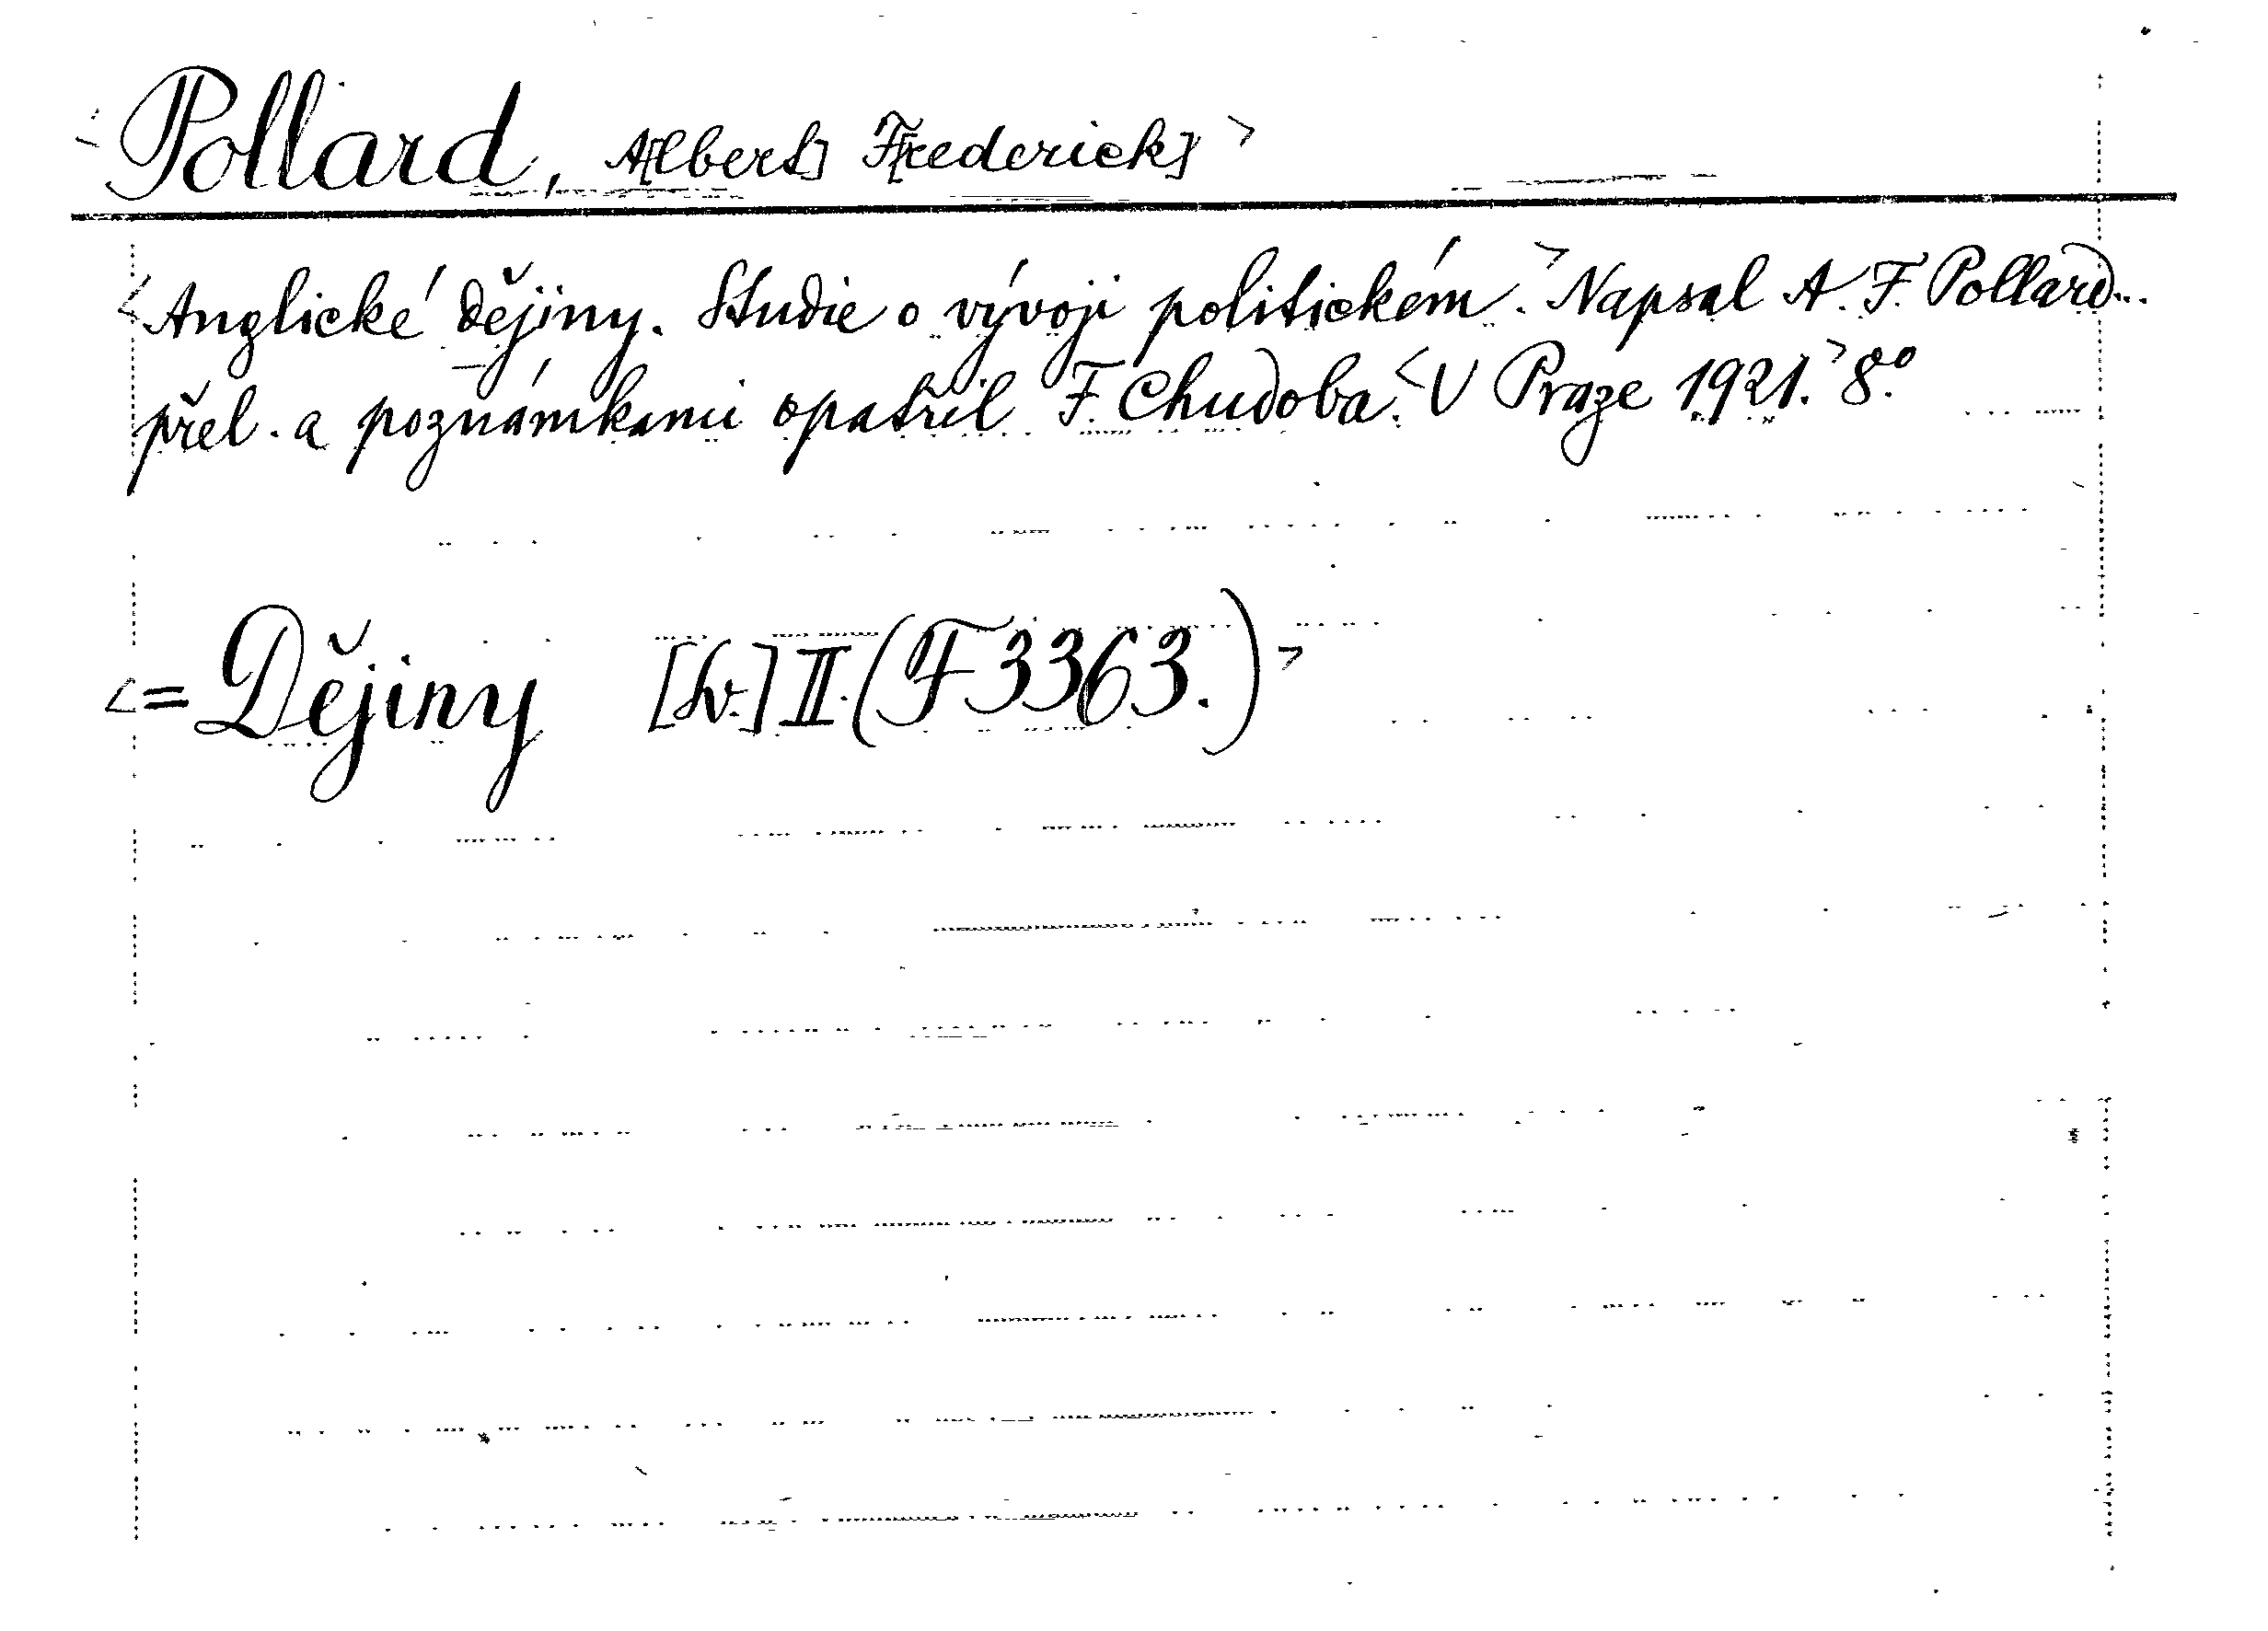 <Pollard, A[lbert] F[rederick]>
<Anglické dějiny. Studie o vývoji politickém.> Napsal A. F. Pollard...
přel. a poznámkami opatřil F. Chudoba. <V Praze 1921.> 8.°
<= Dějiny [sv.] II. (F 3363.)>